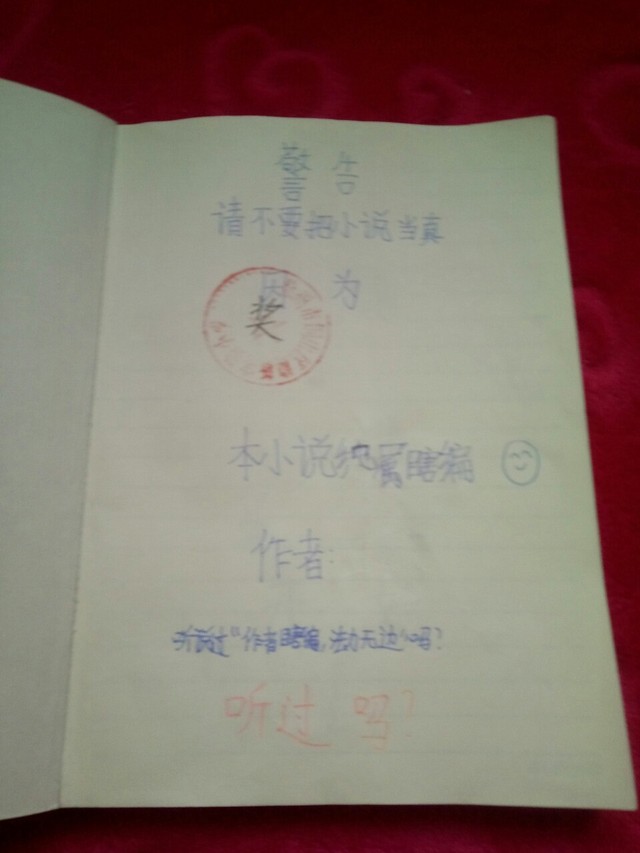 警告
请不要把小说当真
因为
奖
本小说纯属瞎编
作者:
听说过“作者瞎编,法力无边”吗?
听过吗?